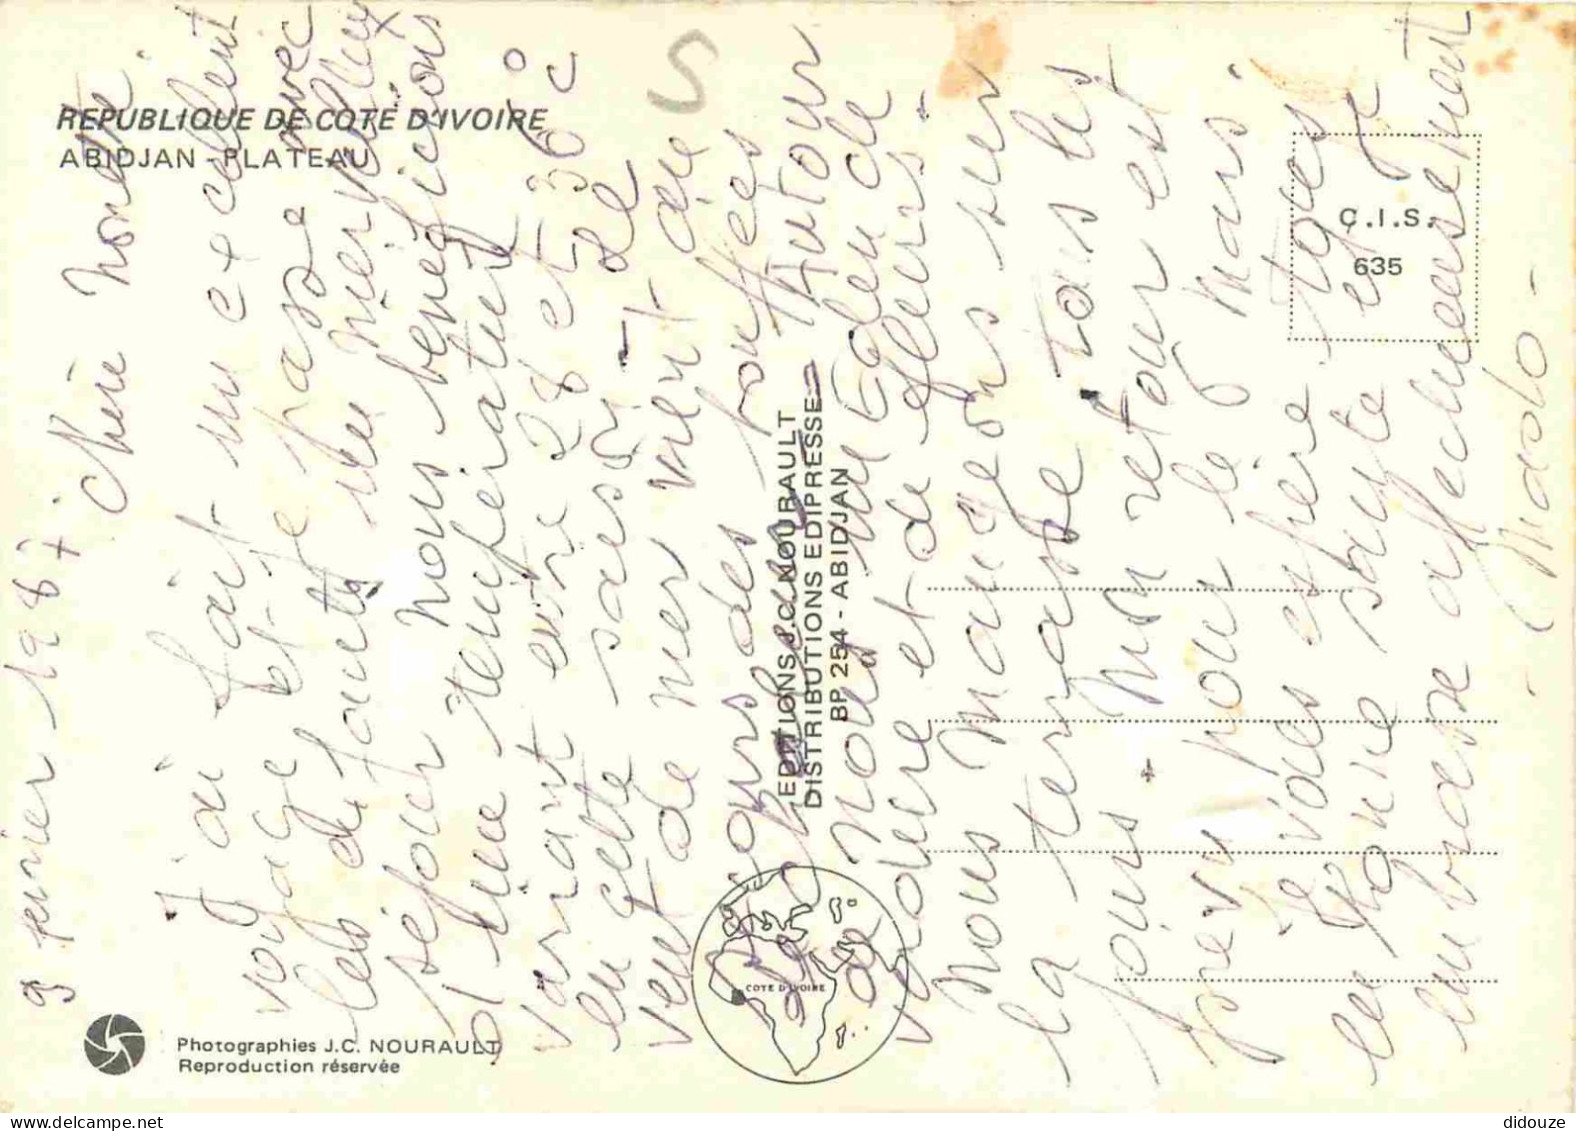 REPUBLIQUE DE COTE D'IVOIRE
ABIDJAN - PLATEAU
C.I.S.
635
EDITIONS J.C. NOURAULT
DISTRIBUTIONS EDIPRESSE
BP 254 - ABIDJAN
COTE D'IVOIRE
Photographies J.C. NOURAULT
Reproduction réservée
9 1987 Chère
J'ai fait un excellent
voyage et je passe avec
les enfants un merveilleux
séjour Nous bénéficions
d'une température
variant entre 28 et 36° C
en cette saison - Le
vent de mer vient
des bouffées
de chaleur Autour
de nous un Eden de
verdure et de fleurs -
Nous mangeons sur
la terrasse tous les
jours. Mon retour est
prévu pour le 6 Mars.
Je vous espère tous
en bonne santé et je
embrasse affectueusement
- Mado -
delcampe.net
didouze